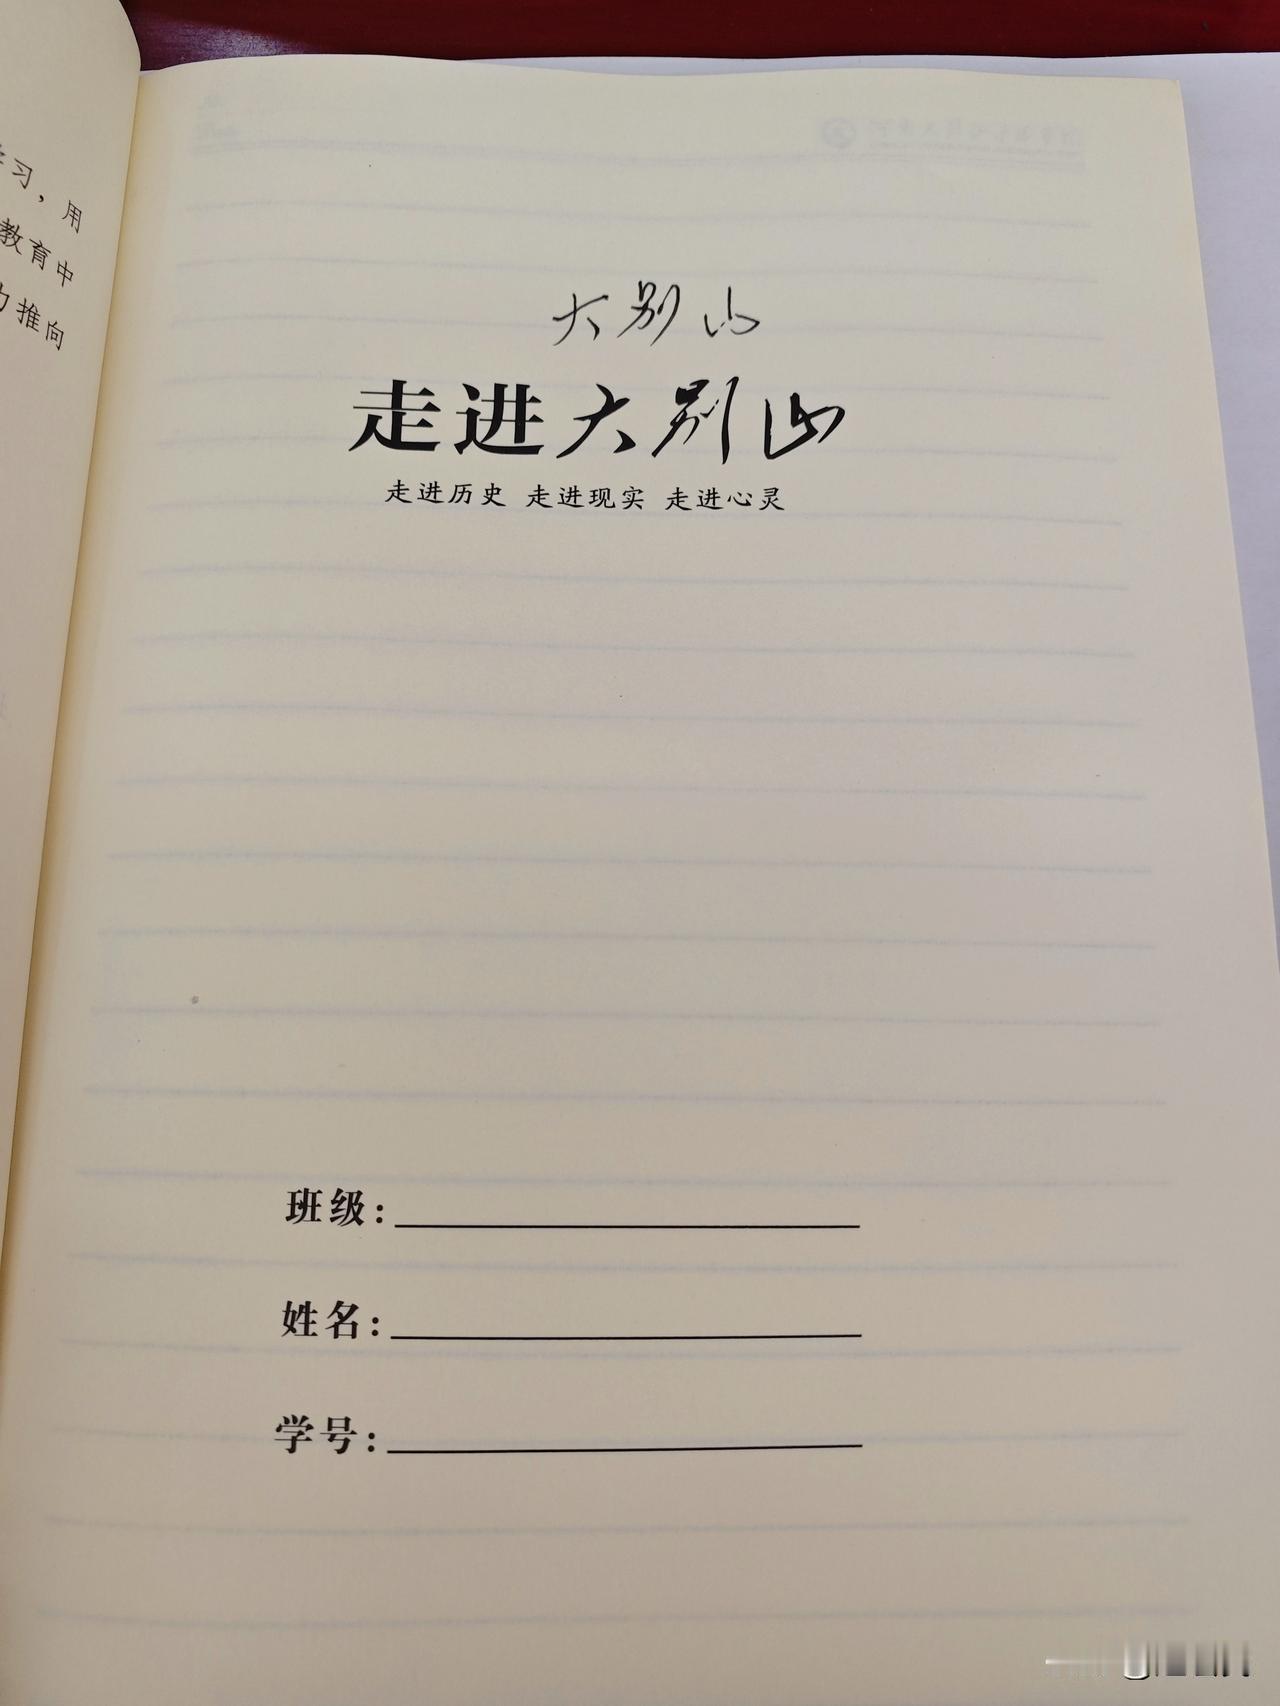 学习，用
教育中
力推向
大别山
走进大别山
走进历史 走进现实 走进心灵
班级：
姓名：
学号：